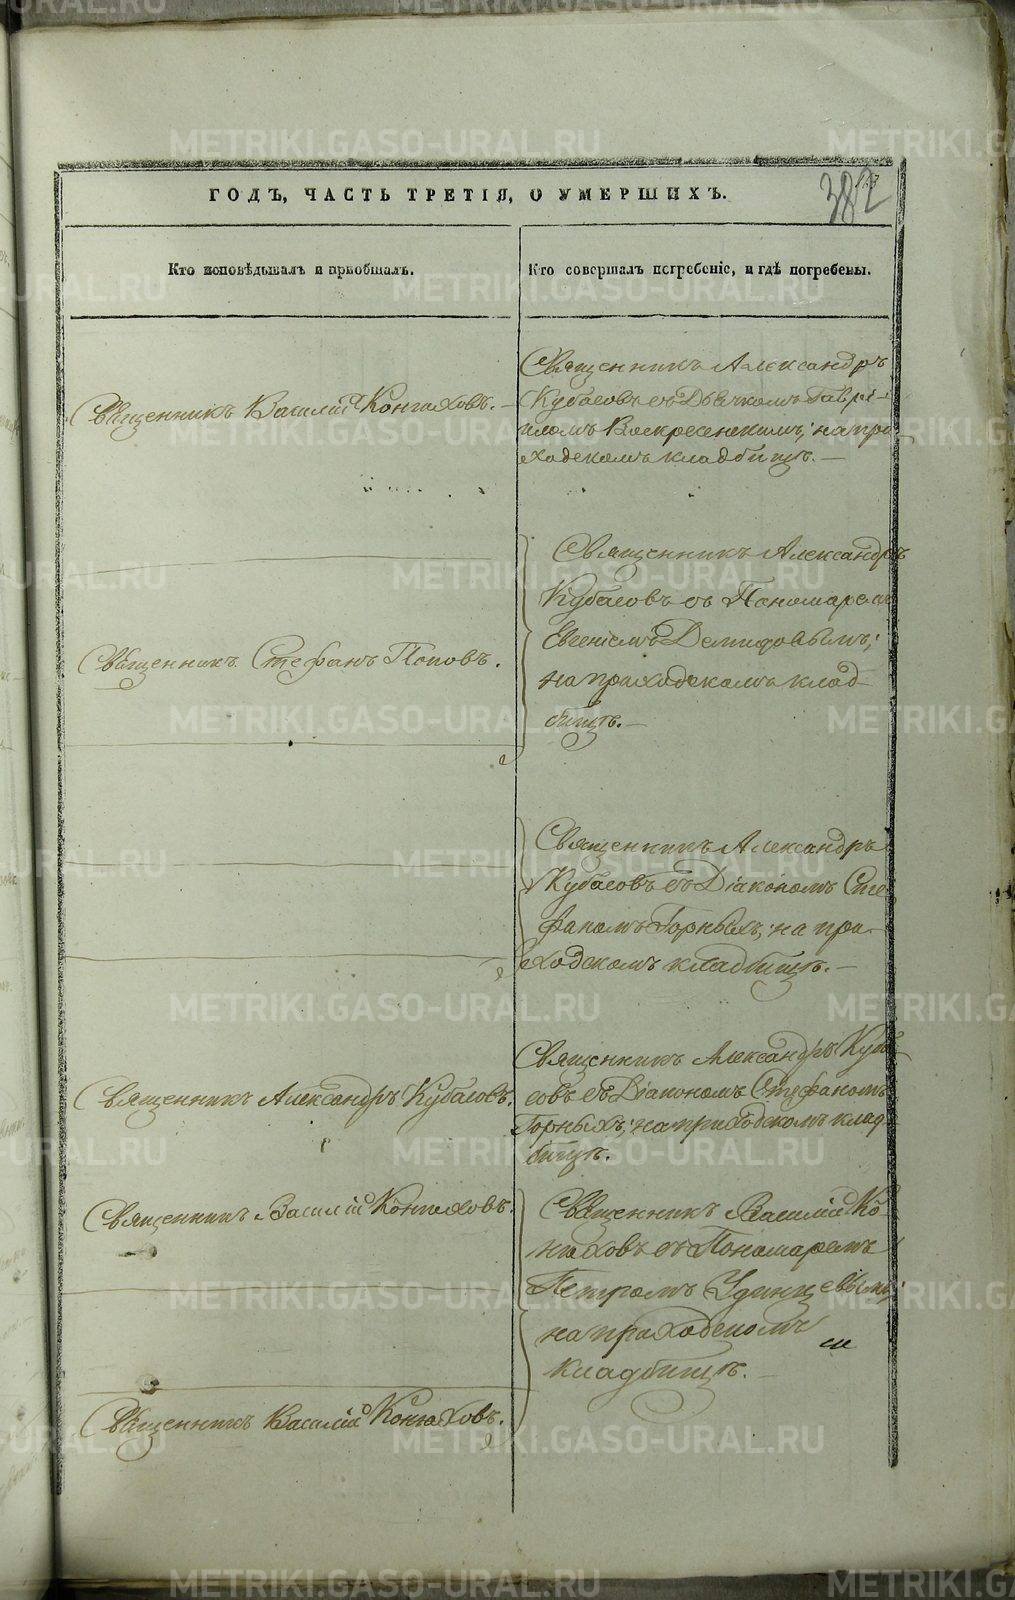 ГОДЪ, ЧАСТЬ ТРЕТІЯ, О УМЕРШИХЪ.
382
Кто исповѣдывалъ и пріобщалъ.
Кто совершалъ погребеніе, и гдѣ погребены.
Священникъ Василій Конюховъ.
Священникъ Александръ
Кубасовъ съ Дьячкомъ Гаврі-
иломъ Воскресенскимъ; на при
ходскомъ кладбищѣ.
Священникъ Стефанъ Поповъ.
Священникъ Александръ
Кубасовъ съ Пономаремъ
Евгеніемъ Демидовымъ;
на приходскомъ клад-
бищѣ.
Священникъ Александръ
Кубасовъ съ Діакономъ Сте
фаномъ Горныхъ; на при-
ходскомъ кладбищѣ.
Священникъ Александръ Кубасовъ.
Священникъ Александръ Куба
совъ съ Діакономъ Стефаномъ
Горныхъ; на приходскомъ клад-
бищѣ.
Священникъ Василій Конюховъ.
Священникъ Василій Ко-
нюховъ съ Пономаремъ
Петромъ Удинцевымъ;
на приходскомъ
кладбищѣ.
Священникъ Василій Конюховъ.
METRIKI.GASO-URAL.RU